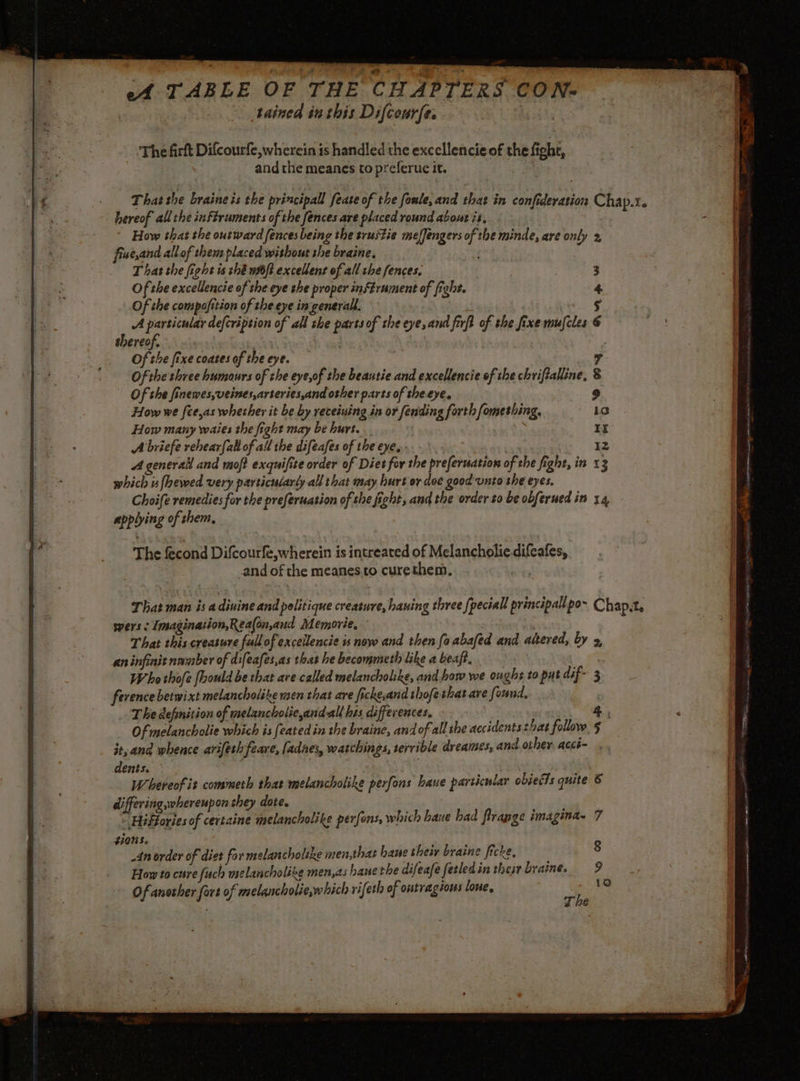 A TABLE OF THE CHAPTERS CON-
tained in this Diſcourſe.
The firſt Diſcourſe, wherein is handled the excellencie of the ſight,
and the meanes to preſerue it.
That the braine is the principall ſeate of the ſoule, and that in conſideration Chap.1.
hereof all the inſtruments of the ſences are placed round about it.
How that the outward ſences being the truſtie meſſengers of the minde, are only 2
fiue, and all of them placed without the braine.
That the ſight is the moſt excellent of all the ſences. 3
Of the excellencie of the eye the proper inſtrument of ſight. 4
Of the compoſition of the eye in generall. 5
A particular deſcription of all the parts of the eye, and firſt of the ſixe muſcles 6
thereof.
Of the ſixe coates of the eye. 7
Of the three humours of the eye, of the beautie and excellencie of the chriſtalline. 8
Of the ſinewes, veines, arteries, and other parts of the eye. 9
How we ſee, as whether it be by receiuing in or ſending forth ſomething. 10
How many waies the ſight may be hurt. 11
A briefe rehearſall of all the diſeaſes of the eye. 12
A generall and moſt exquiſite order of Diet for the preſeruation of the ſight, in 13
which is ſhewed very particularly all that may hurt or doe good vnto the eyes.
Choiſe remedies for the preſeruation of the ſight, and the order to be obſerued in 14
applying of them.
The ſecond Diſcourſe, wherein is intreated of Melancholie diſeaſes,
and of the meanes to cure them.
That man is a diuine and politique creature, hauing three ſpeciall principall po- Chap.1.
wers: Imagination, Reaſon, and Memorie.
That this creature full of excellencie is now and then ſo abaſed and altered, by 2
an infinit number of diſeaſes, as that he becommeth like a beaſt.
Who thoſe ſhould be that are called melancholike, and how we ought to put dif- 3
ference betwixt melancholike men that are ſicke, and thoſe that are ſound.
The definition of melancholie, and all his differences. 4
Of melancholie which is ſeated in the braine, and of all the accidents that follow 5
it, and whence ariſeth feare, ſadnes, watchings, terrible dreames, and other acci-
dents.
Whereof it commeth that melancholike perſons haue particular obiects quite 6
differing, whereupon they dote.
Hiſtories of certaine melancholike perſons, which haue had ſtrange imagina- 7
tions.
An order of diet for melancholike men, that haue their braine ſicke. 8
How to cure ſuch melancholike men, as haue the diſeaſe ſetled in their braine. 9
Of another ſort of melancholie, which riſeth of outragious loue. 10
The